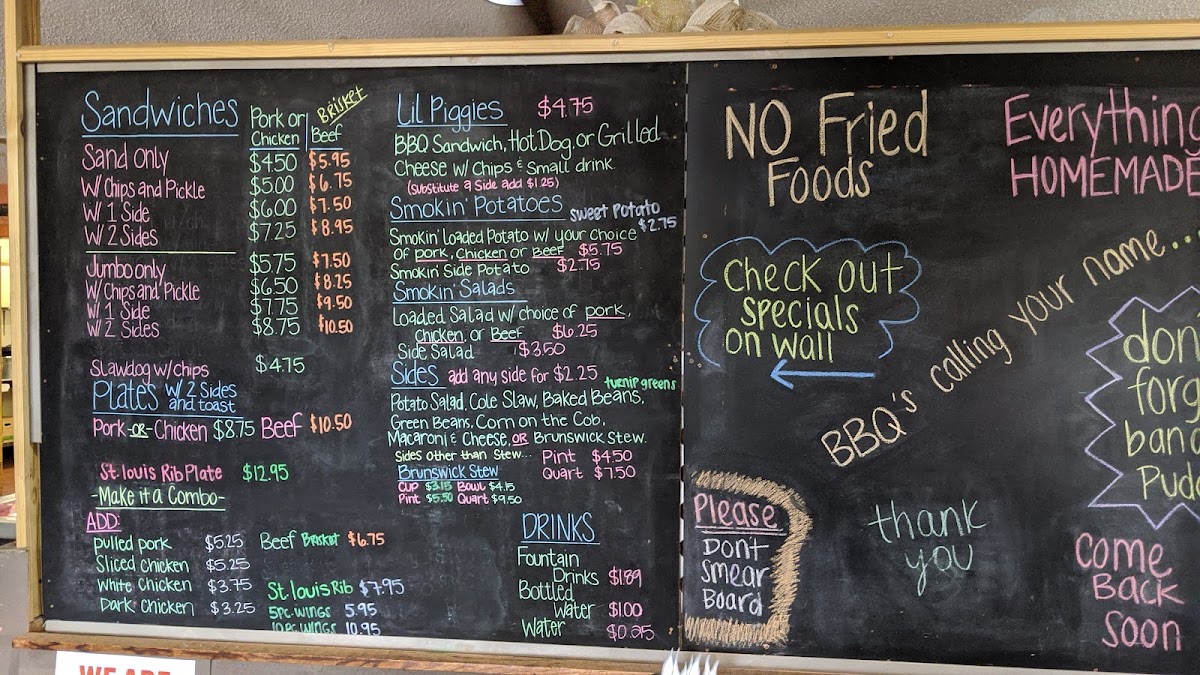 Sandwiches Pork or Chicken Brisket Beef
Sand only $4.50 $5.95
W/ Chips and Pickle $5.00 $6.75
W/ 1 Side $6.00 $7.50
W/ 2 Sides $7.25 $8.95
Jumbo only $5.75 $7.50
W/ Chips and Pickle $6.50 $8.25
W/ 1 Side $7.75 $9.50
W/ 2 Sides $8.75 $10.50
Slawdog w/chips $4.75
Plates w/ 2 Sides and toast
Pork -or- Chicken $8.75 Beef $10.50
St. louis Rib Plate $12.95
-Make it a Combo-
ADD:
pulled pork $5.25 Beef Brisket $6.75
Sliced chicken $5.25
White chicken $3.75 St. louis Rib $7.95
Dark chicken $3.25 5pc wings 5.95
10 pc wings 10.95
Lil Piggies $4.75
BBQ Sandwich, Hot Dog, or Grilled
Cheese w/ Chips & Small drink.
(Substitute a Side add $1.25)
Smokin' Potatoes sweet potato $2.75
Smokin' loaded Potato w/ your choice
of pork, chicken or Beef $5.75
Smokin Side Potato $2.75
Smokin' Salads
Loaded Salad w/ choice of pork,
Chicken, or Beef $6.25
Side Salad $3.50
Sides add any side for $2.25 turnip greens
Potato Salad, Cole Slaw, Baked Beans,
Green Beans, Corn on the Cob,
Macaroni & Cheese, OR Brunswick Stew.
Sides other than Stew... Pint $4.50
Quart $7.50
Brunswick Stew
Cup $3.15 Bowl $4.15
Pint $5.50 Quart $9.50
DRINKS
Fountain
Drinks $1.89
Bottled
Water $1.00
Water $0.25
NO Fried
Foods
Everything
HOMEMADE
Check out
specials
on wall
BBQ's calling your name...
Please
Don't
Smear
Board
thank
you
don
forg
bana
Pudd
Come
Back
Soon
WE ARE